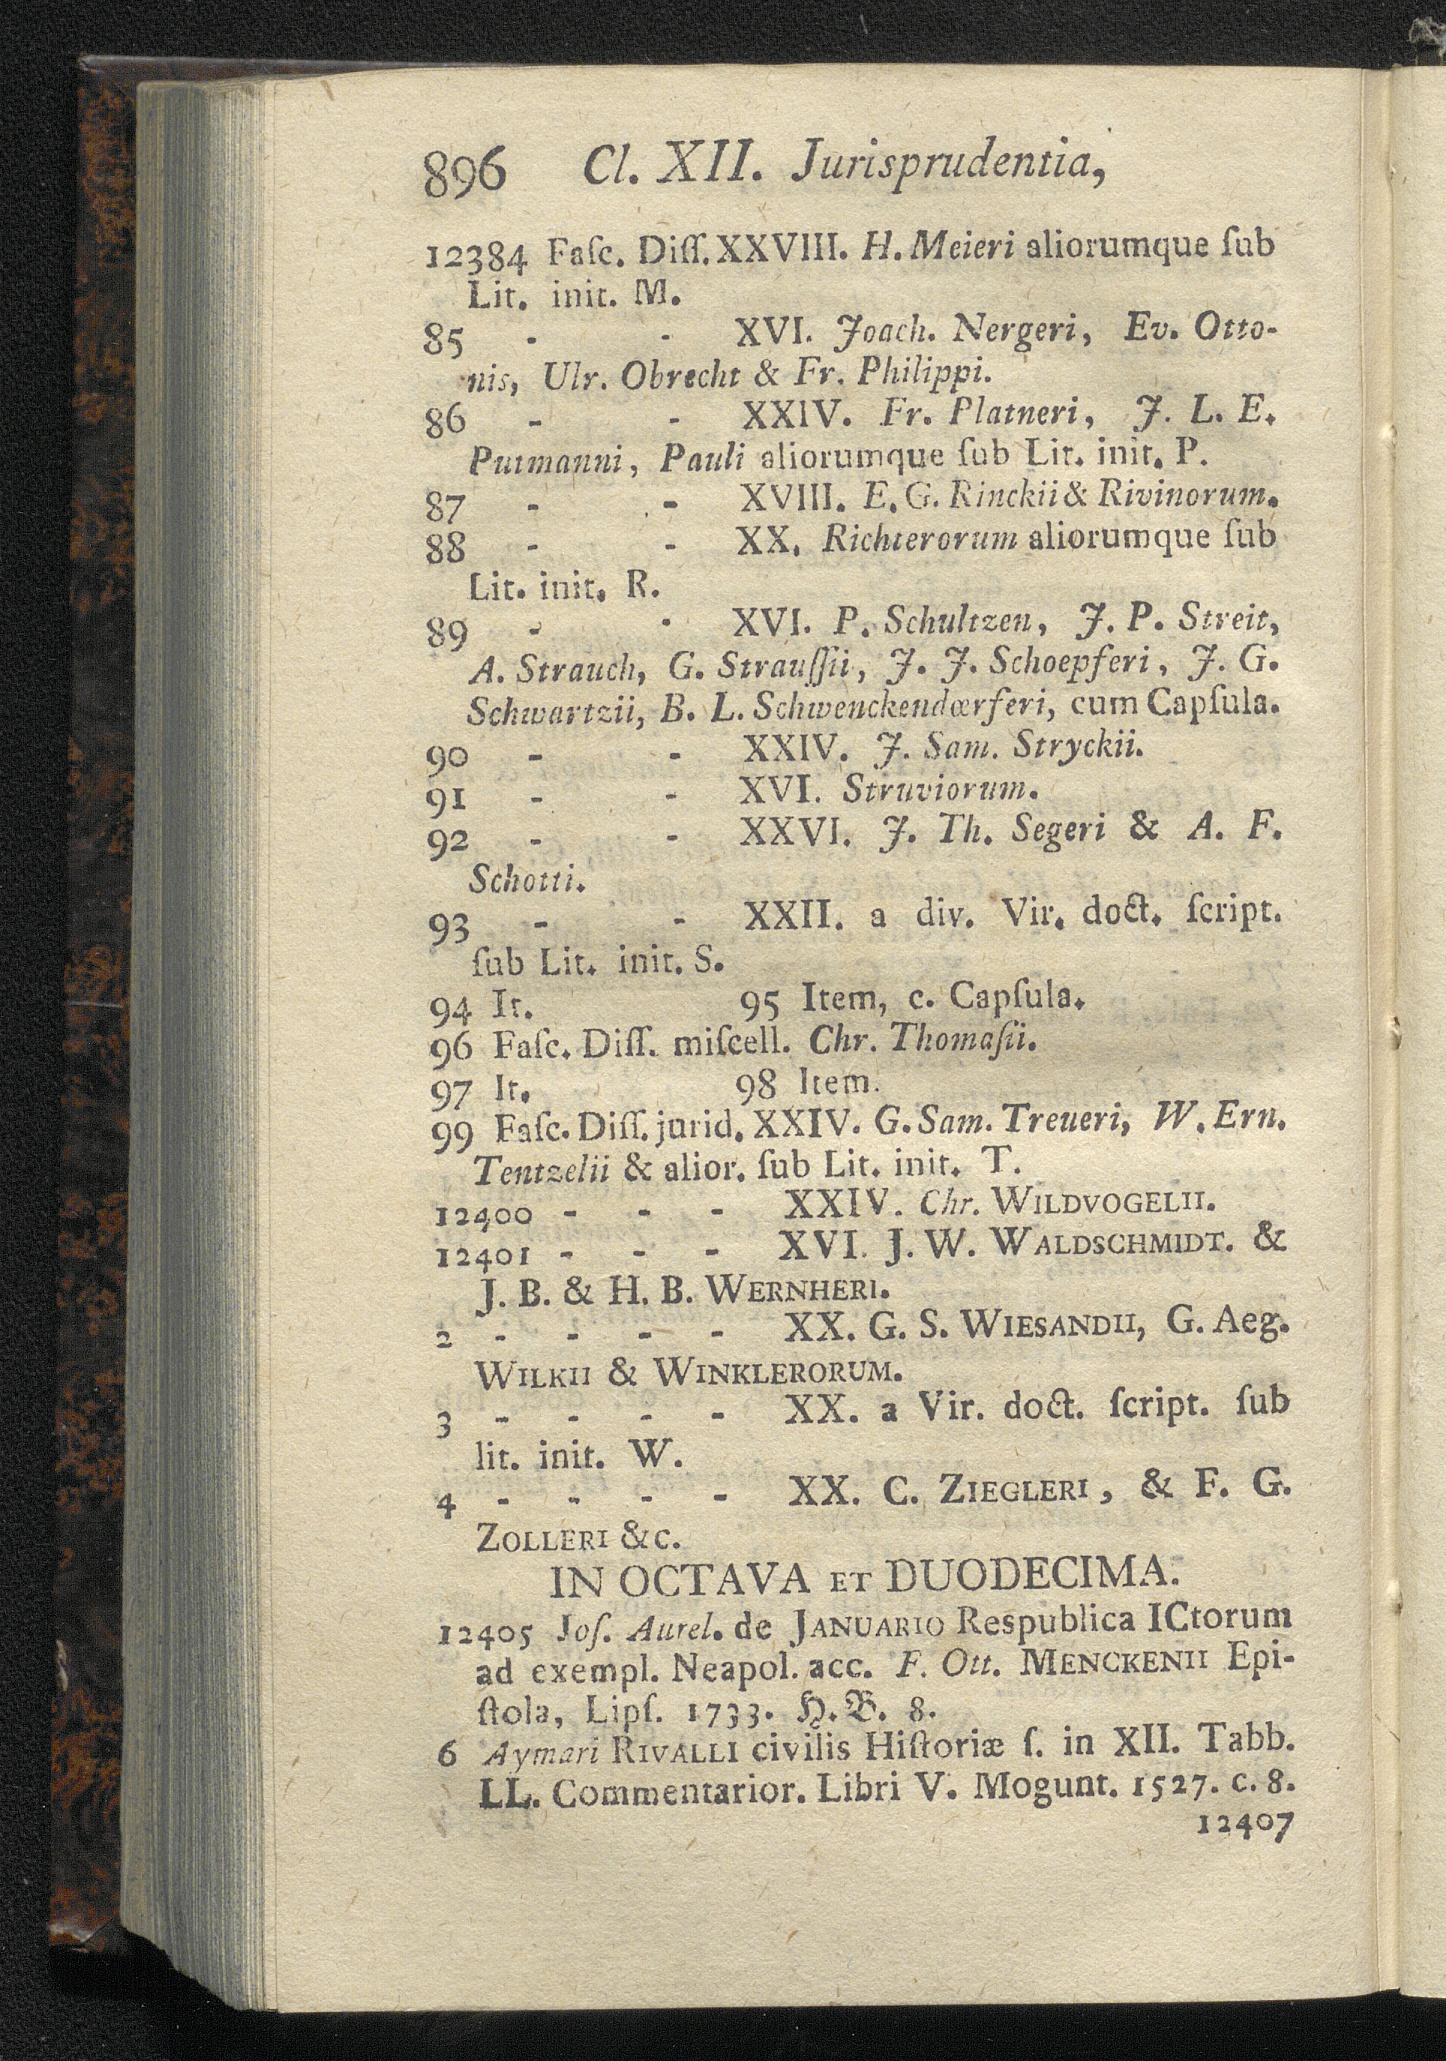 896 Cl. XII. Jurisprudentia,
12384 Faſc. Diſſ. XXVIII. H. Meieri aliorumque ſub
Lit. init. M.
85 - - XVI. Joach. Nergeri, Ev. Otto-
nis, Ulr. Obrecht & Fr. Philippi.
86 - - XXIV. Fr. Platneri, J. L. E.
Putmanni, Pauli aliorumque ſub Lit. init. P.
87 - - XVIII. E. G. Rinckii & Rivinorum.
88 - - XX. Richterorum aliorumque ſub
Lit. init. R.
89 - - XVI. P. Schultzen, J. P. Streit,
A. Strauch, G. Strauſſii, J. J. Schoepferi, J. G.
Schwartzii, B. L. Schwenckendœrferi, cum Capſula.
90 - - XXIV. J. Sam. Stryckii.
91 - - XVI. Struviorum.
92 - - XXVI. J. Th. Segeri & A. F.
Schotti.
93 - - XXII. a div. Vir. doct. ſcript.
ſub Lit. init. S.
94 It. 95 Item, c. Capſula.
96 Faſc. Diſſ. miſcell. Chr. Thomaſii.
97 It. 98 Item.
99 Faſc. Diſſ. jurid. XXIV. G. Sam. Treueri, W. Ern.
Tentzelii & alior. ſub Lit. init. T.
12400 - - - XXIV. Chr. WILDVOGELII.
12401 - - - XVI. J. W. WALDSCHMIDT. &
J. B. & H. B. WERNHERI.
2 - - - - XX. G. S. WIESANDII, G. Aeg.
WILKII & WINKLERORUM.
3 - - - - XX. a Vir. doct. ſcript. ſub
lit. init. W.
4 - - - - XX. C. ZIEGLERI, & F. G.
ZOLLERI &c.
IN OCTAVA ET DUODECIMA.
12405 Joſ. Aurel. de JANUARIO Respublica ICtorum
ad exempl. Neapol. acc. F. Ott. MENCKENII Epi-
ſtola, Lipſ. 1733. H. B. 8.
6 Aymari RIVALLI civilis Hiſtoriæ ſ. in XII. Tabb.
LL. Commentarior. Libri V. Mogunt. 1527. c. 8.
12407